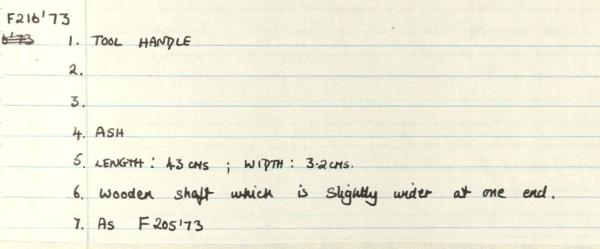 F216'73
6'73 1. TOOL HANDLE
2.
3.
4. ASH
5. LENGTH : 43 CMS ; WIDTH : 3.2 CMS.
6. Wooden shaft which is slightly wider at one end.
7. As F205'73